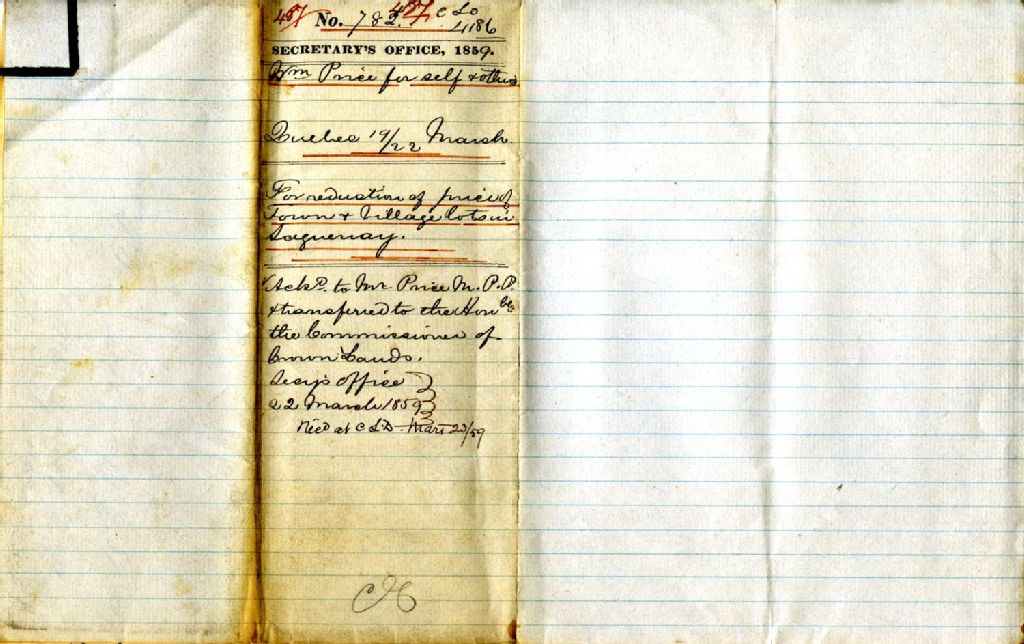 487 No. 782. 487 C L D
4186
SECRETARY'S OFFICE, 1859.
Wm Price for self & others
Quebec 19/22 March
For reduction of price of
Town & Village lots in
Saguenay.
Ackd. to Mr Price M.P.P.
& transferred to the Honble
the Commissioner of
Crown Lands.
Secy's office
22 March 1859
Recd at C L D Mars 23/59